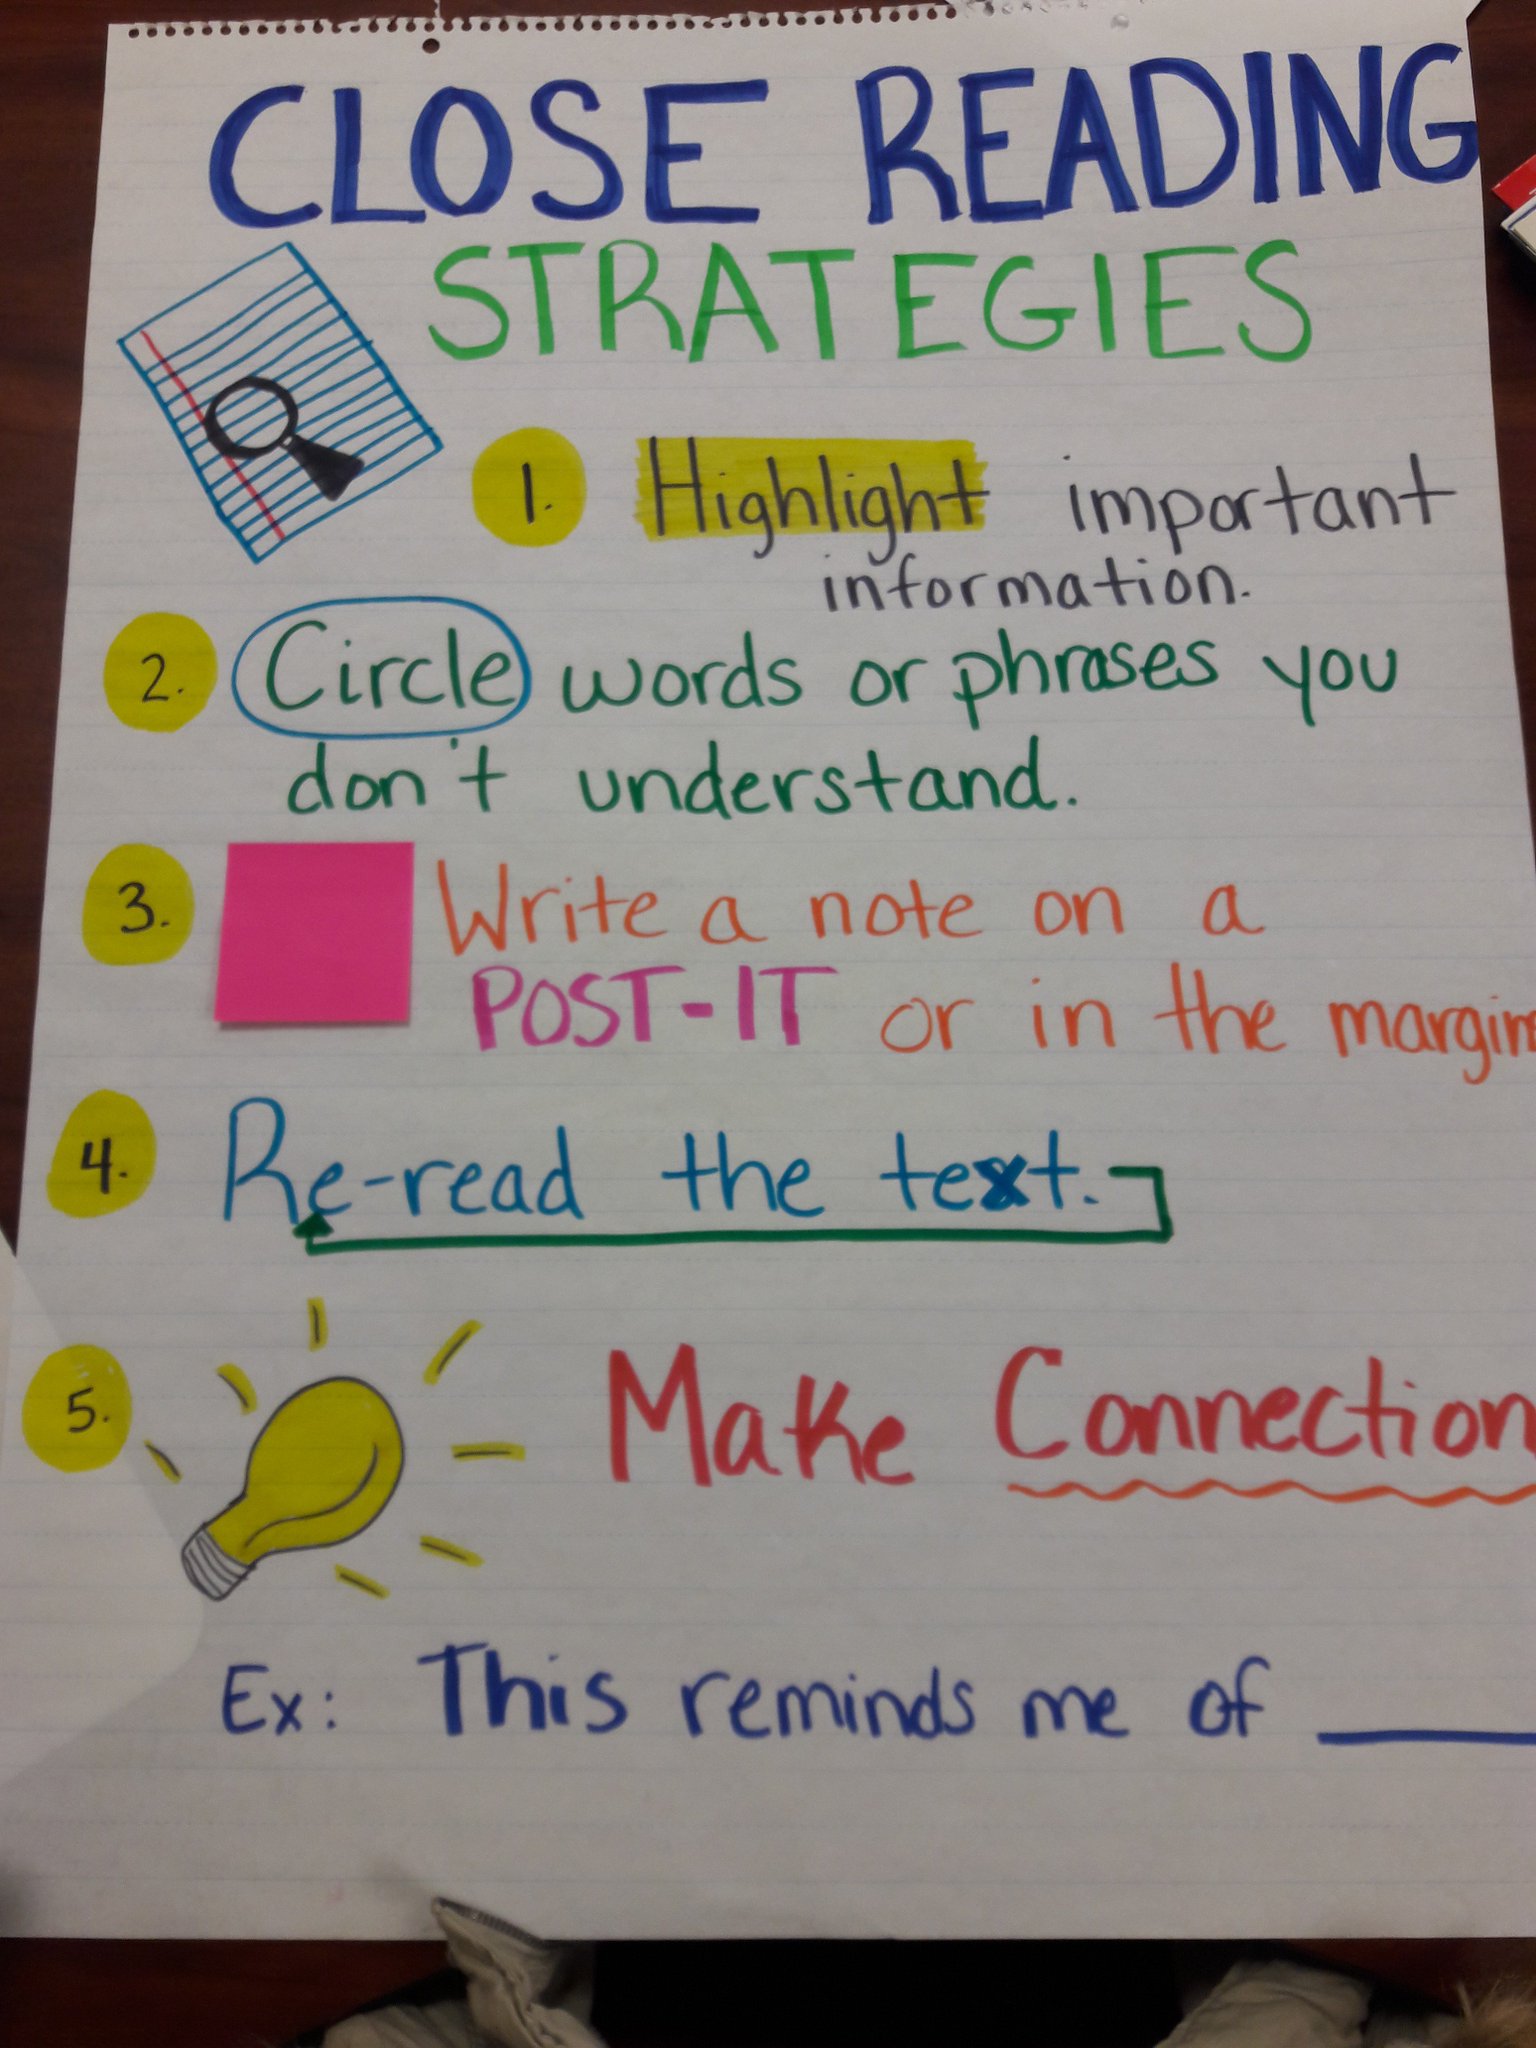 CLOSE READING
STRATEGIES
1. Highlight important
information.
2. Circle words or phrases you
don't understand.
3. Write a note on a
POST-IT or in the margin
4. Re-read the text.
5. Make Connection
Ex: This reminds me of ____